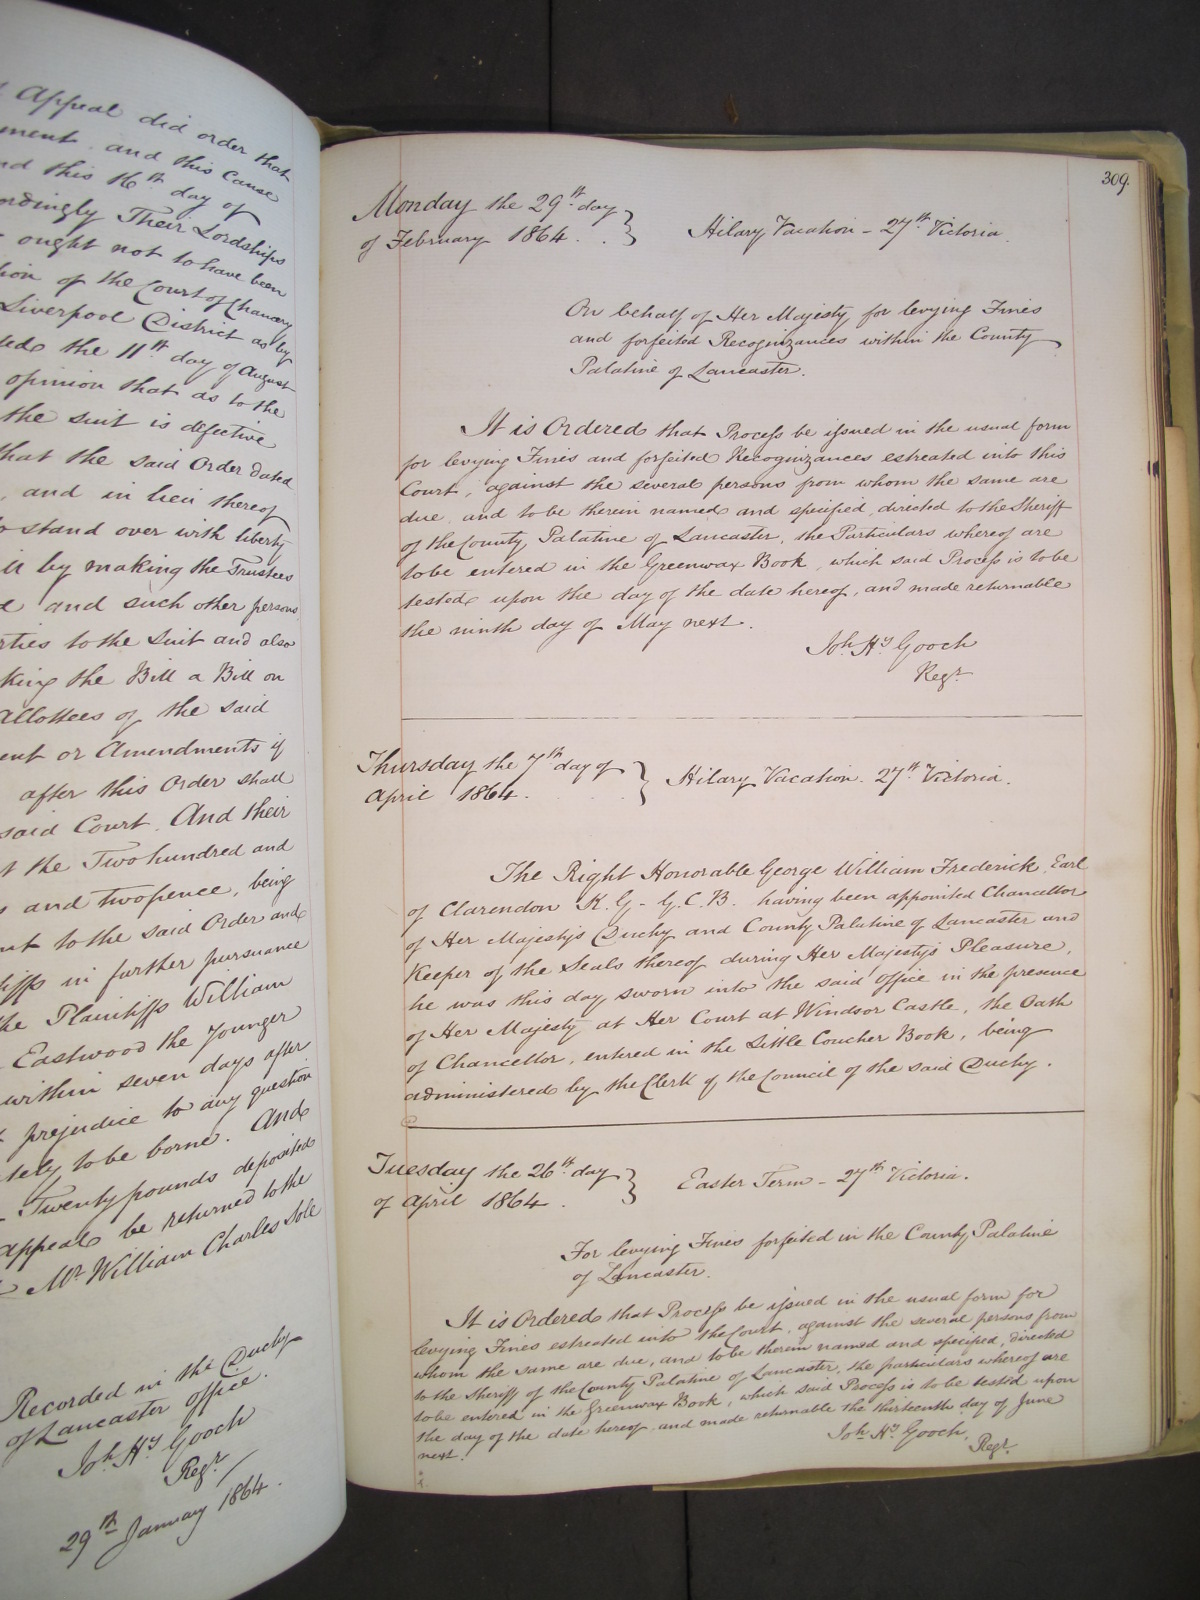 Appeal did order that
and this Cause
this 16th day of
Their Lordships
ought not to have been
of the Court of Chancery
Liverpool District as by
the 11th day of August
opinion that as to the
the suit is defective
that the said Order dated
and in lieu thereof
stand over with liberty
by making the Trustees
and such other persons
to the Suit and also
the Bill a Bill on
Allottees of the said
or Amendments if
after this Order shall
said Court. And their
the Two hundred and
and twopence, being
to the said Order and
in further pursuance
the Plaintiffs William
Eastwood the Younger
within seven days after
prejudice to any question
to be borne. And
Twenty pounds deposited
appeal be returned to the
Mr. William Charles Sole
Recorded in the Duchy
of Lancaster Office.
Joh. Hy. Gooch
Regr.
29th January 1864.
309.
Monday the 29th day
of February 1864. } Hilary Vacation - 27th Victoria.
On behalf of Her Majesty for levying Fines
and forfeited Recognizances within the County
Palatine of Lancaster.
It is Ordered that Process be issued in the usual form
for levying Fines and forfeited Recognizances estreated into this
Court, against the several persons from whom the same are
due, and to be therein named and specified, directed to the Sheriff
of the County Palatine of Lancaster, the Particulars whereof are
to be entered in the Greenwax Book, which said Process is to be
tested upon the day of the date hereof, and made returnable
the ninth day of May next.
Joh. Hy. Gooch
Regr.
Thursday the 7th day of
April 1864. } Hilary Vacation. 27th Victoria.
The Right Honorable George William Frederick, Earl
of Clarendon K.G. - G.C.B. having been appointed Chancellor
of Her Majesty's Duchy and County Palatine of Lancaster and
Keeper of the Seals thereof during Her Majesty's Pleasure,
he was this day sworn into the said Office in the presence
of Her Majesty at Her Court at Windsor Castle, the Oath
of Chancellor, entered in the Little Coucher Book, being
administered by the Clerk of the Council of the said Duchy.
Tuesday the 26th day
of April 1864. } Easter Term - 27th Victoria.
For levying Fines forfeited in the County Palatine
of Lancaster.
It is Ordered that Process be issued in the usual form for
levying Fines estreated into the Court, against the several persons from
whom the same are due, and to be therein named and specified, directed
to the Sheriff of the County Palatine of Lancaster, the particulars whereof are
to be entered in the Greenwax Book, which said Process is to be test'd upon
the day of the date hereof and made returnable the thirteenth day of June
next.
Joh. Hy. Gooch,
Regr.